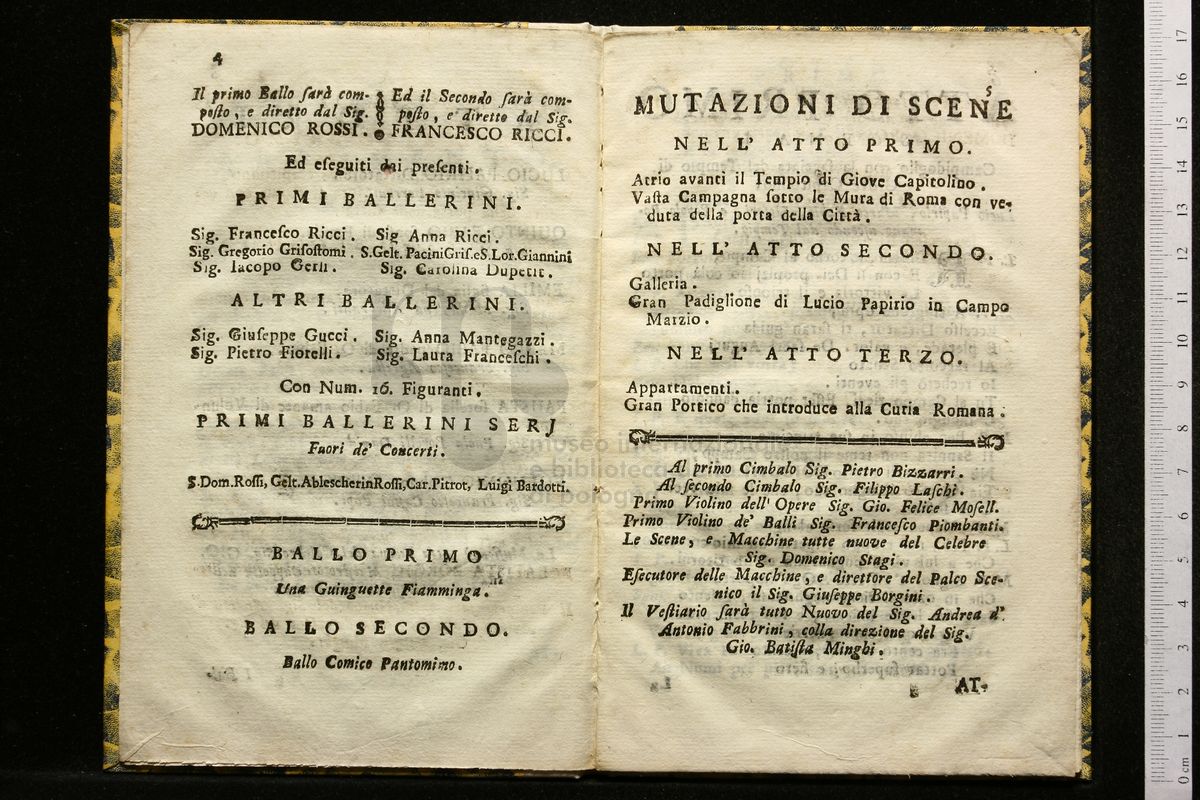 4
Il primo Ballo ſarà com-
poſto, e diretto dal Sig.
DOMENICO ROSSI.
Ed il Secondo ſarà com-
poſto, e diretto dal Sig.
FRANCESCO RICCI.
Ed eſeguiti dai preſenti.
PRIMI BALLERINI.
Sig. Franceſco Ricci. Sig Anna Ricci.
Sig. Gregorio Griſoſtomi. S.Gelt. PaciniGriſ.eS.Lor.Giannini
Sig. Iacopo Gerli. Sig. Carolina Dupetit.
ALTRI BALLERINI.
Sig. Giuſeppe Gucci. Sig. Anna Mantegazzi.
Sig. Pietro Fiorelli. Sig. Laura Franceſchi.
Con Num. 16. Figuranti.
PRIMI BALLERINI SERJ
Fuori de' Concerti.
S.Dom.Roſſi, Gelt.AblescherinRoſſi,Car.Pitrot, Luigi Bardotti.
BALLO PRIMO
Una Guinguette Fiamminga.
BALLO SECONDO.
Ballo Comico Pantomimo.
5
MUTAZIONI DI SCENE
NELL' ATTO PRIMO.
Atrio avanti il Tempio di Giove Capitolino.
Vaſta Campagna ſotto le Mura di Roma con ve-
duta della porta della Città.
NELL' ATTO SECONDO.
Galleria.
Gran Padiglione di Lucio Papirio in Campo
Marzio.
NELL' ATTO TERZO.
Appartamenti.
Gran Portico che introduce alla Curia Romana.
Al primo Cimbalo Sig. Pietro Bizzarri.
Al ſecondo Cimbalo Sig. Filippo Laſchi.
Primo Violino dell' Opere Sig. Gio. Felice Moſell.
Primo Violino de' Balli Sig. Franceſco Piombanti.
Le Scene, e Macchine tutte nuove del Celebre
Sig. Domenico Stagi.
Eſecutore delle Macchine, e direttore del Palco Sce-
nico il Sig. Giuſeppe Borgini.
Il Veſtiario ſarà tutto Nuovo del Sig. Andrea d'
Antonio Fabbrini, colla direzione del Sig.
Gio. Batiſta Minghi.
AT-
museo internazionale
e biblioteca
di bologna
0 cm 1 2 3 4 5 6 7 8 9 10 11 12 13 14 15 16 17